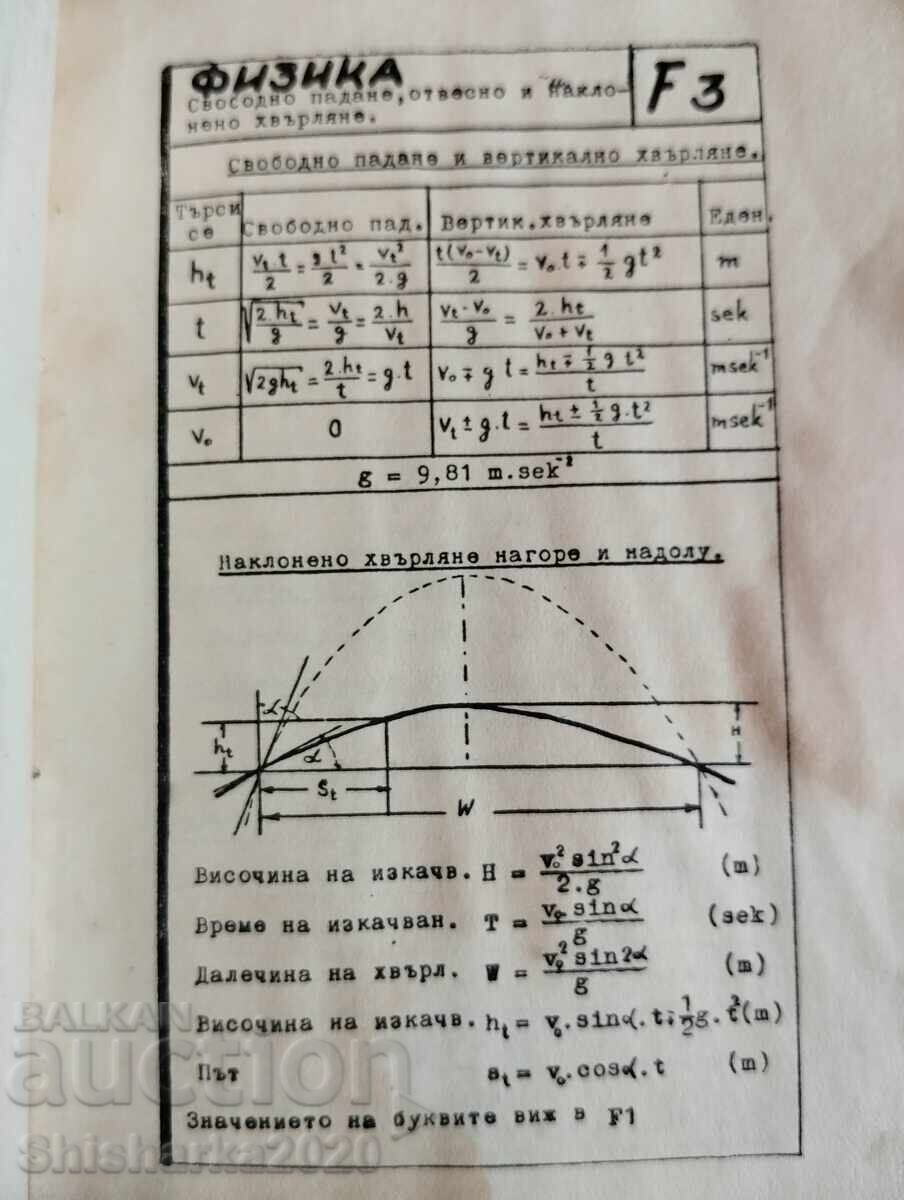 ФИЗИКА
Свободно падане, отвесно и накло-
нено хвърляне.
F 3
Свободно падане и вертикално хвърляне.
Търси се | Свободно пад. | Вертик.хвърляне | Един.
hₜ | vₜ.t/2 = g t²/2 = vₜ²/2.g | t(v₀-vₜ)/2 = v₀.t ∓ 1/2 gt² | m
t | √(2.hₜ/g) = vₜ/g = 2.h/vₜ | vₜ-v₀/g = 2.hₜ/v₀+vₜ | sek
vₜ | √2ghₜ = 2.hₜ/t = g.t | v₀ ∓ g t = hₜ ∓ 1/2 g t²/t | msek⁻¹
v₀ | 0 | vₜ ± g.t = hₜ ± 1/2 g.t²/t | msek⁻¹
g = 9,81 m.sek⁻²
Наклонено хвърляне нагоре и надолу.
α
hₜ
α
H
Sₜ
W
Височина на изкачв. H = v₀² sin²α/2.g (m)
Време на изкачван. T = v₀ sinα/g (sek)
Далечина на хвърл. W = v₀² sin2α/g (m)
Височина на изкачв. hₜ = v₀.sinα.t ∓ 1/2 g.t² (m)
Път sₜ = v₀.cosα.t (m)
Значението на буквите виж в F1
BALKAN
auction
Shisharka2020